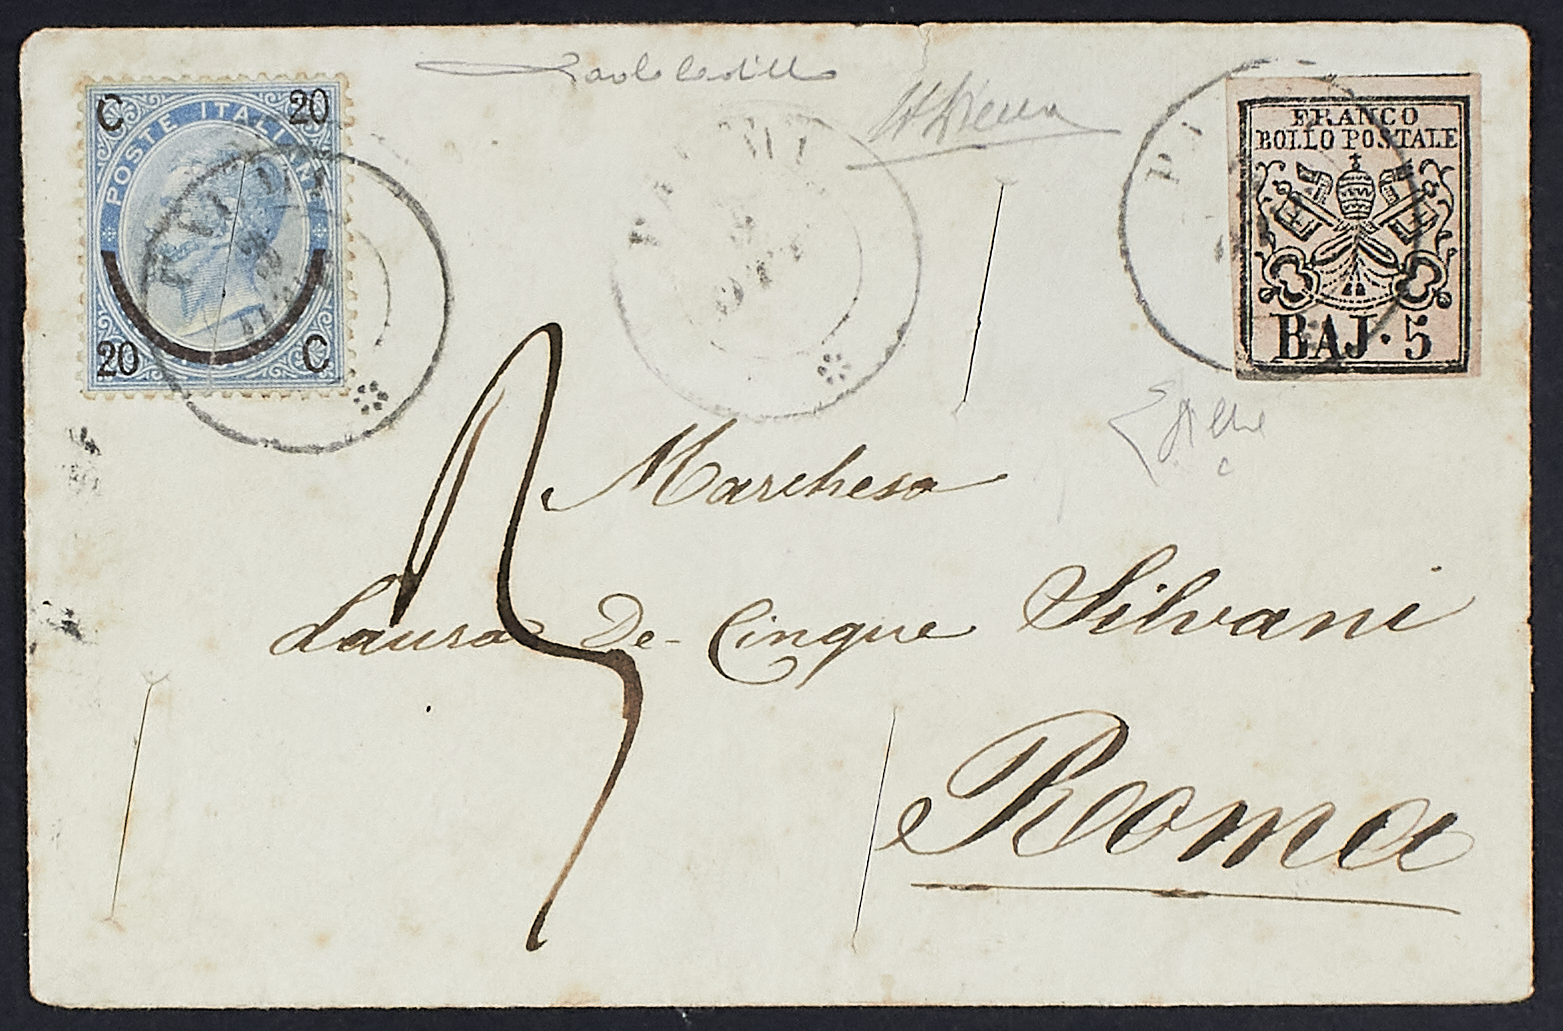 C 20
POSTE ITALIANE
20 C
FRANCO
BOLLO POSTALE
BAJ. 5
OTT
Marchesa
Laura De-Cinque Silvani
Roma